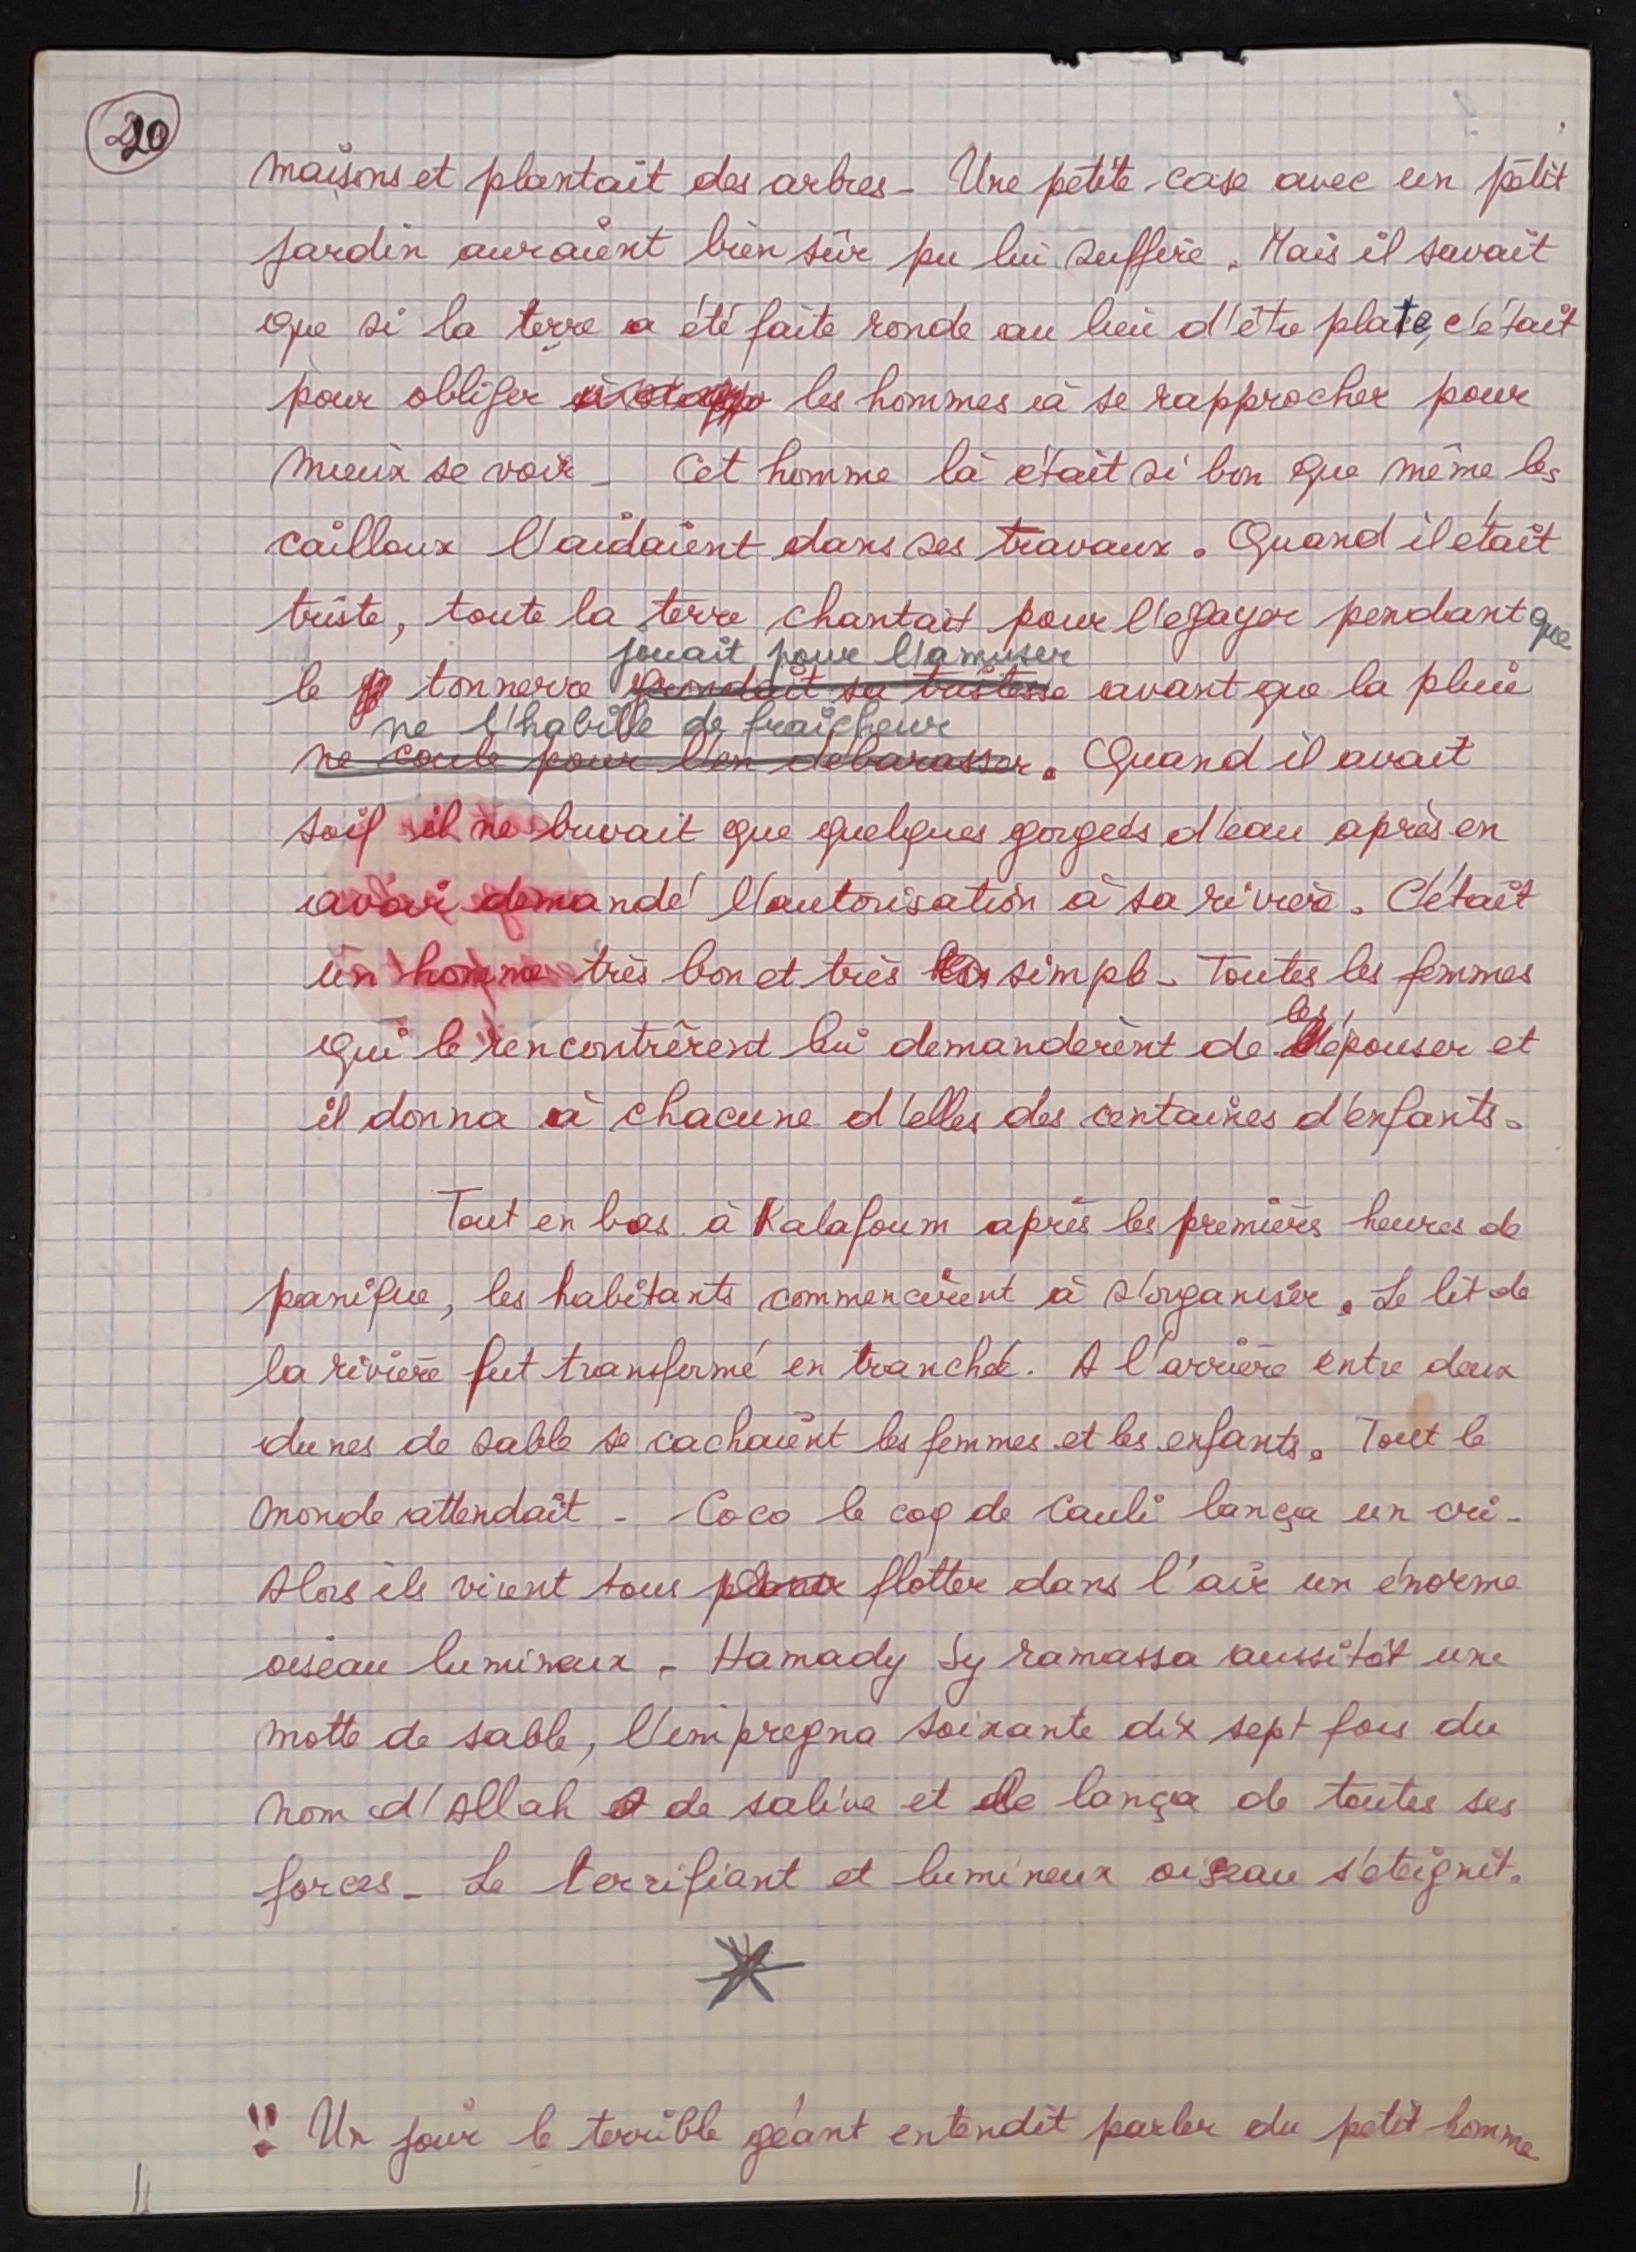 20
maisons et plantait des arbres - Une petite case avec un petit
jardin auraient bien sûr pu lui suffire. Mais il savait
que si la terre a été faite ronde au lieu d'être plate, c'était
pour obliger les hommes à se rapprocher pour
mieux se voir - Cet homme là était si bon que même les
cailloux l'aidaient dans ses travaux. Quand il était
triste, toute la terre chantait pour l'egayer pendant que
jouait pour l'amuser
le tonnerre grondait sa tristesse avant que la pluie
ne l'habille de fraîcheur
ne coule pour l'en débarasser. Quand il avait
soif il ne buvait que quelques gorgées d'eau après en
avoir demandé l'autorisation à sa rivière. C'était
un homme très bon et très simple - Toutes les femmes
les
qui le rencontrèrent lui demandèrent de l'épouser et
il donna à chacune d'elles des centaines d'enfants.
Tout en bas à Kalafoum après les premières heures de
panique, les habitants commencèrent à s'organiser. Le lit de
la rivière fut transformé en tranchée. A l'arrière entre deux
dunes de sable se cachaient les femmes et les enfants. Tout le
monde attendait - Coco le coq de Cauli lança un cri -
Alors ils virent tous planer flotter dans l'air un énorme
oiseau lumineux - Hamady Sy ramassa aussitôt une
motte de sable, l'impregna soixante dix sept fois du
nom d'Allah de salive et le lança de toutes ses
forces - Le terrifiant et lumineux oiseau s'éteignit.
*
!! Un jour le terrible géant entendit parler du petit homme